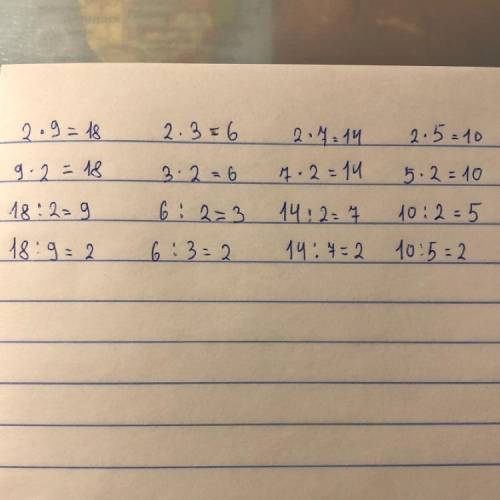 2 · 9 = 18 2 · 3 = 6 2 · 7 = 14 2 · 5 = 10
9 · 2 = 18 3 · 2 = 6 7 · 2 = 14 5 · 2 = 10
18 : 2 = 9 6 : 2 = 3 14 : 2 = 7 10 : 2 = 5
18 : 9 = 2 6 : 3 = 2 14 : 7 = 2 10 : 5 = 2